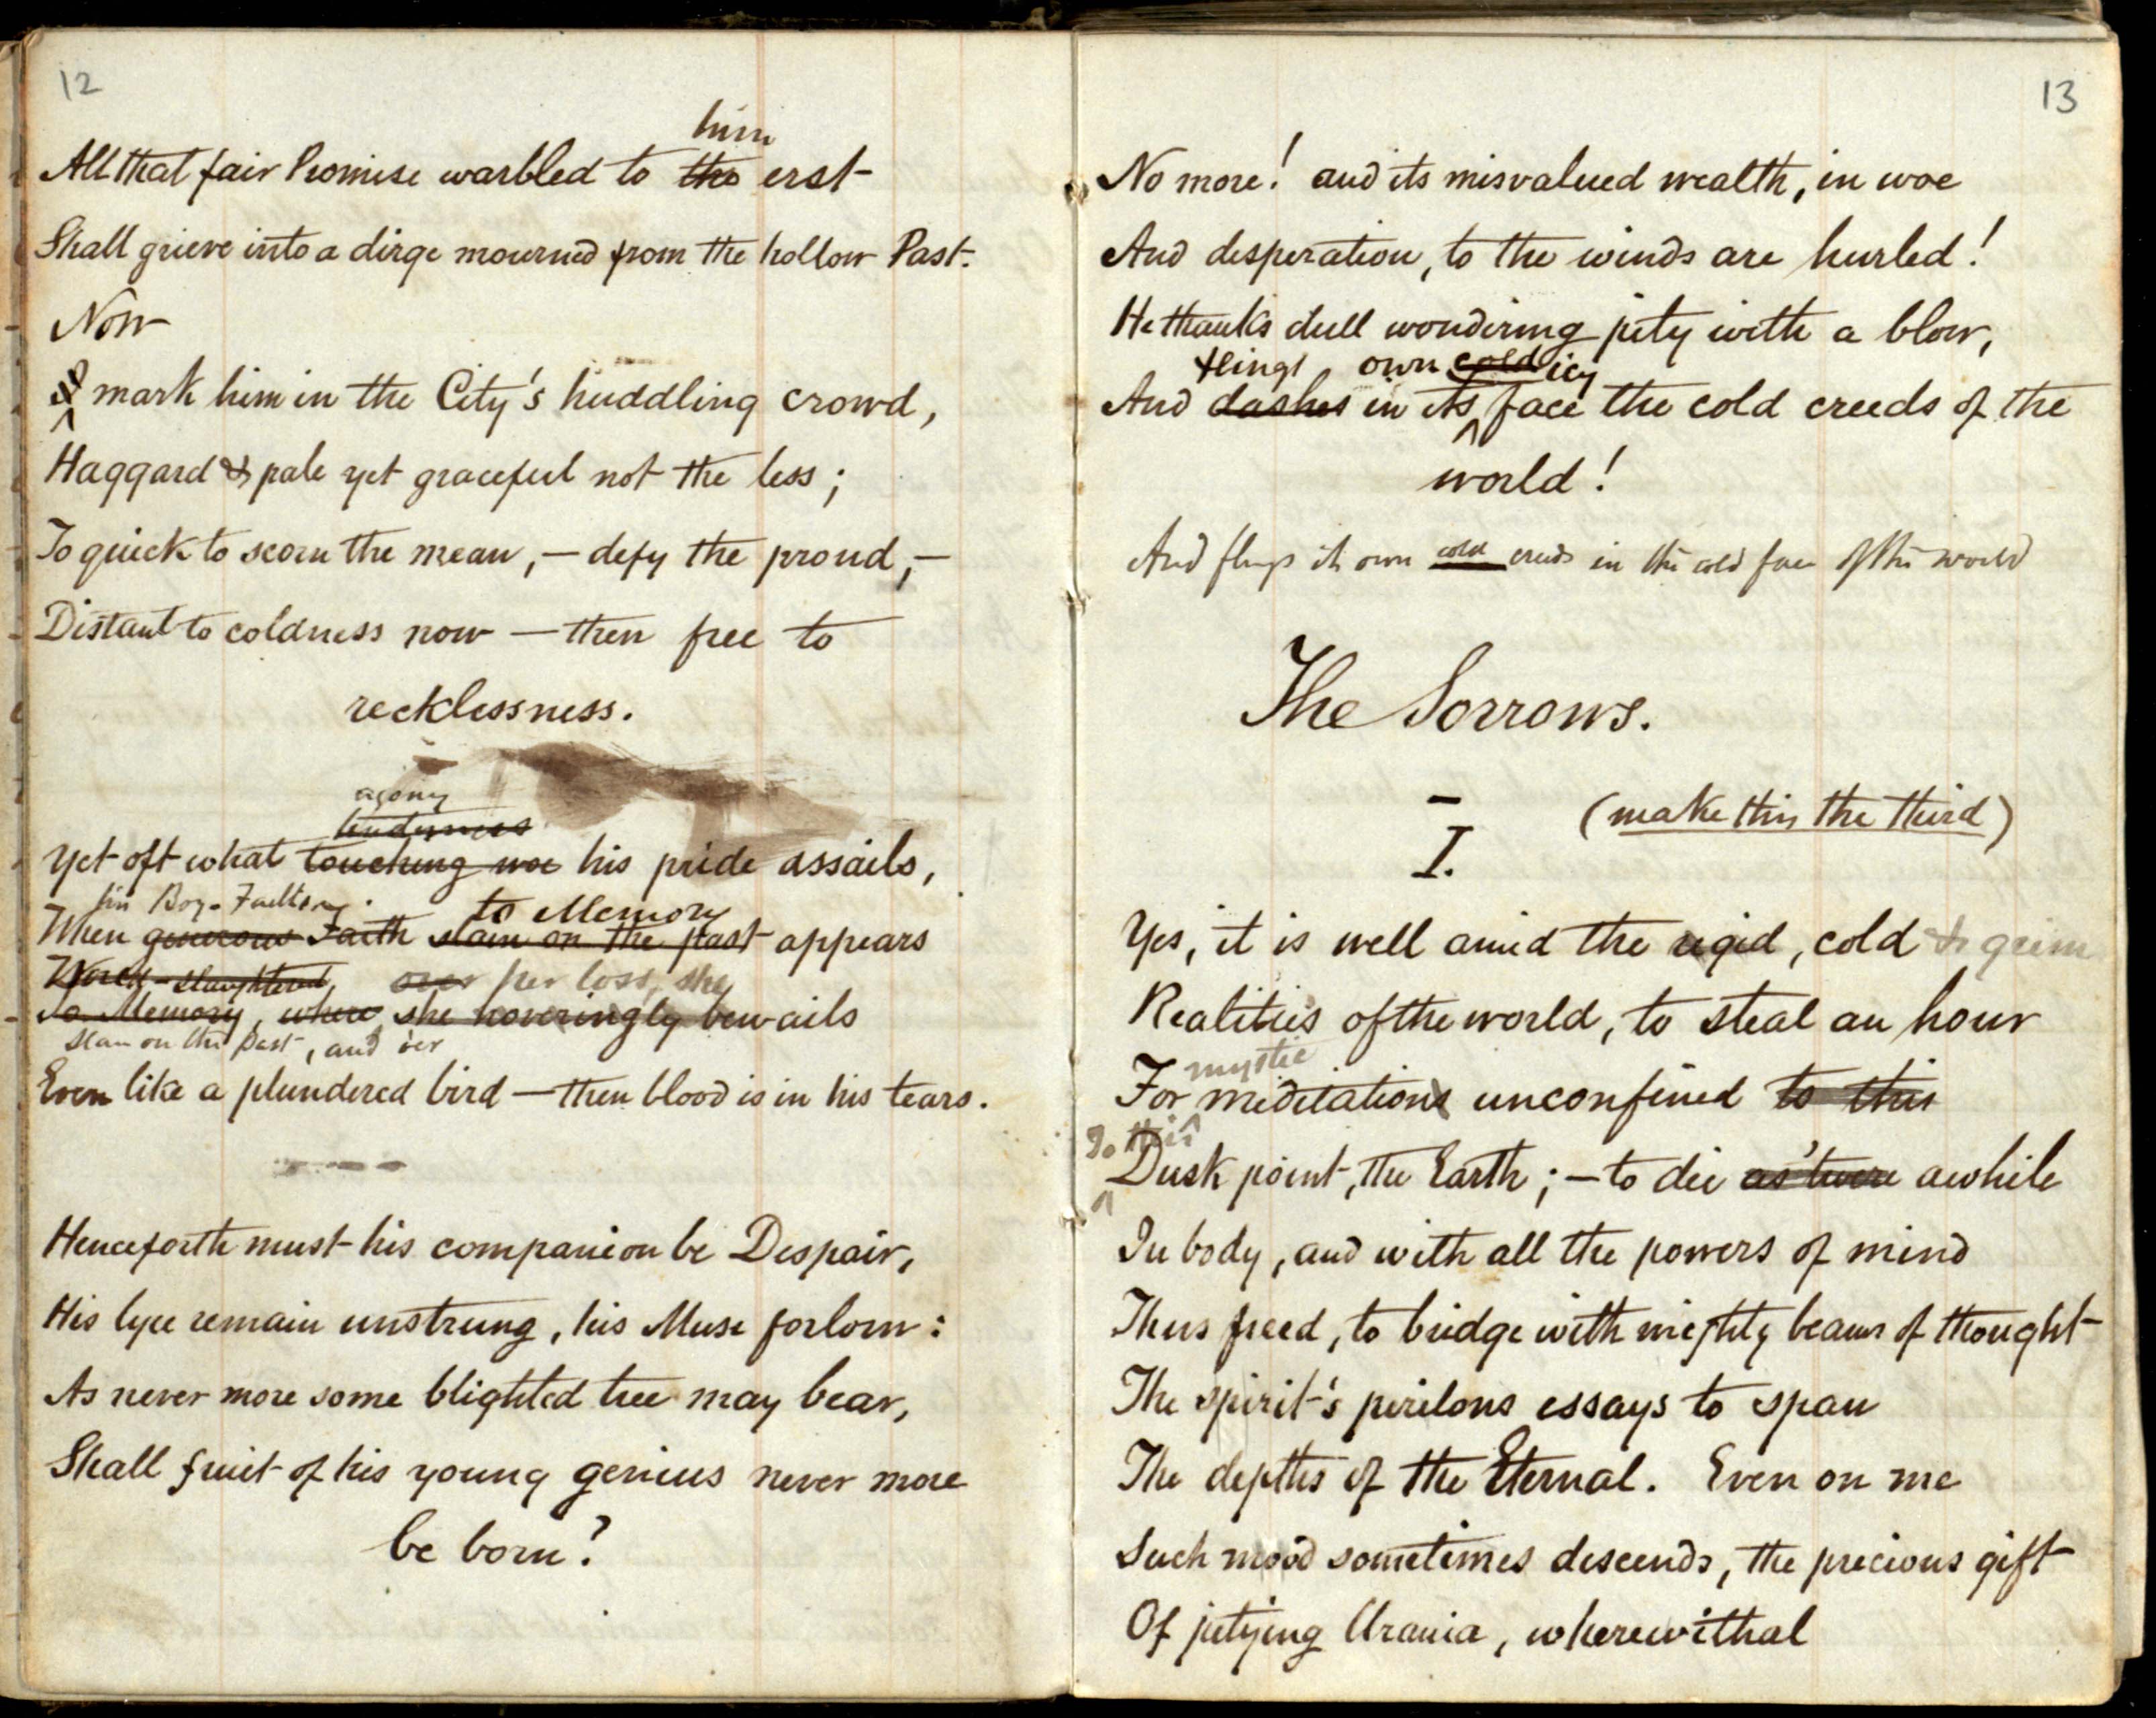 12
him
All that fair Promise warbled to the erst
Shall grieve into a dirge mourned from the hollow Past.
Now
mark him in the City's huddling crowd,
Haggard & pale yet graceful not the less;
To quick to scorn the mean, — defy the proud, —
Distant to coldness now — then free to
recklessness.
agony
tenderness
Yet oft what touching woe his pride assails,
his Boy-
to Memory
When generous Faith slain on the past appears
slaughtered, over her loss, she
To Memory, where she hoveringly bewails
slain on the Past, and o'er
Even like a plundered bird — then blood is in his tears.
Henceforth must his companion be Despair,
His lyre remain unstrung, his Muse forlorn:
As never more some blighted tree may bear,
Shall fruit of his young genius never more
be born?
13
No more! and its misvalued wealth, in woe
And desperation, to the winds are hurled!
He thanks dull wondering pity with a blow,
flings own cold icy
And dashes in its face the cold creeds of the
world!
And flings its own cold creeds in the cold face of the world
The Sorrows.
I. (make this the third)
Yes, it is well amid the rigid, cold & grim
Realities of the world, to steal an hour
mystic
For meditations unconfined to this
To this
Dusk point, the Earth; — to die as 'twere awhile
In body, and with all the powers of mind
Thus freed, to bridge with mighty beams of thought
The spirit's perilous essays to span
The depths of the Eternal. Even on me
Such mood sometimes descends, the precious gift
Of pitying Urania, wherewithal